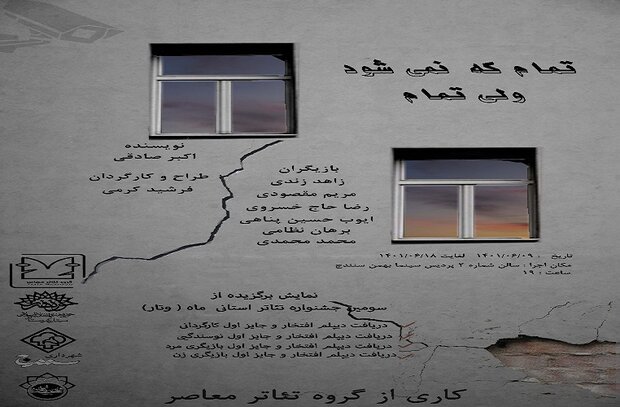 تمام که نمی شود
ولی تمام
نویسنده
اکبر صادقی
طراح و کارگردان
فرشید کرمی
بازیگران
زاهد زندی
مریم مقصودی
رضا حاج خسروی
ایوب حسین پناهی
برهان نظامی
محمد محمدی
تاریخ : ۱۴۰۱/۰۶/۰۹ لغایت ۱۴۰۱/۰۶/۱۸
مکان اجرا : سالن شماره ۲ پردیس سینما بهمن سنندج
ساعت : ۱۹
نمایش برگزیده از
سومین جشنواره تئاتر استانی ماه ( وتار)
دریافت دیپلم افتخار و جایز اول کارگردانی
دریافت دیپلم افتخار و جایز اول نویسندگی
دریافت دیپلم افتخار و جایز اول بازیگری مرد
دریافت دیپلم افتخار و جایز اول بازیگری زن
شهرداری
کاری از گروه تئاتر معاصر